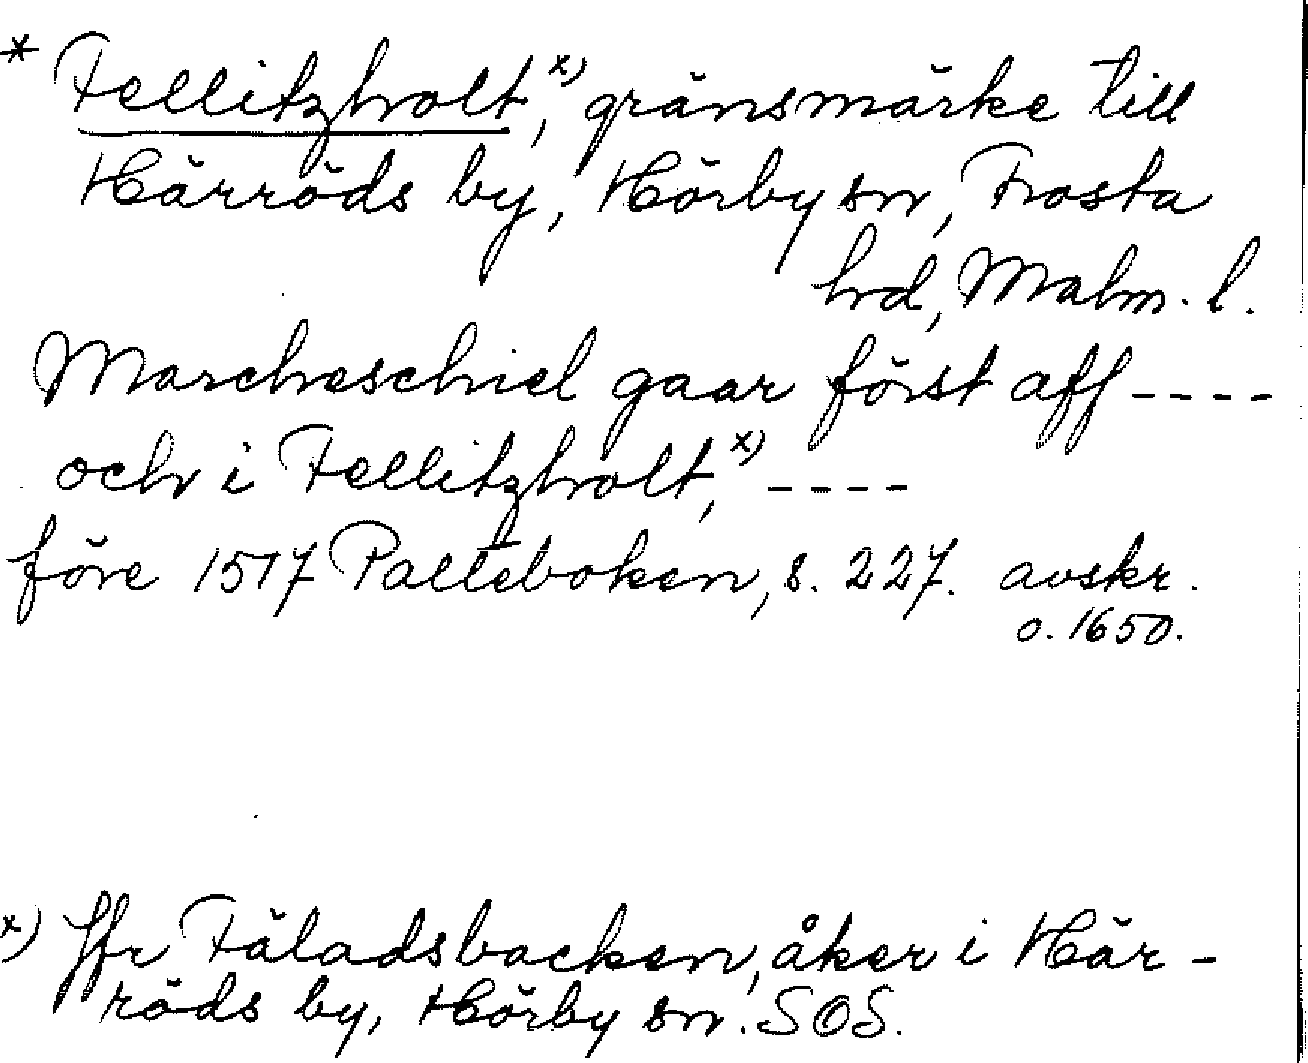 * Fellitzholt,x) gränsmärke till
Härröds by, Hörby sn, Frosta
hd, Malm. l.
Marcheschiel gaar först aff ----
och i Fellitzholt,x) ----
före 1517 Palteboken, s. 227. avskr.
o. 1650.
x) Jfr Fäladsbacken, åker i Här-
röds by, Hörby sn. SOS.